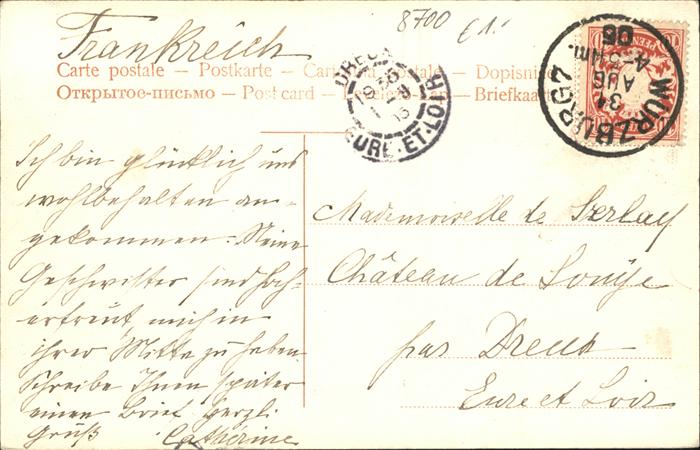 8700 €1.-
Frankreich
Carte postale — Postkarte — Dopisni
Открытое-письмо — Post card — Briefkaa
DREUX
19 30
EURE-ET-LOIR
WÜRZBURG 2
31
AUG
4-5 Nm.
05
10 PFENNIG 10
Ich bin glücklich und
wohlbehalten an-
gekommen. Meine
Geschwister sind hoch-
erfreut, mich in
ihrer Mitte zu haben.
Schreibe Ihnen später
einen Brief herzl.
Gruß Catherine
Mademoiselle de
Château de
par Dreux
Eure et Loir